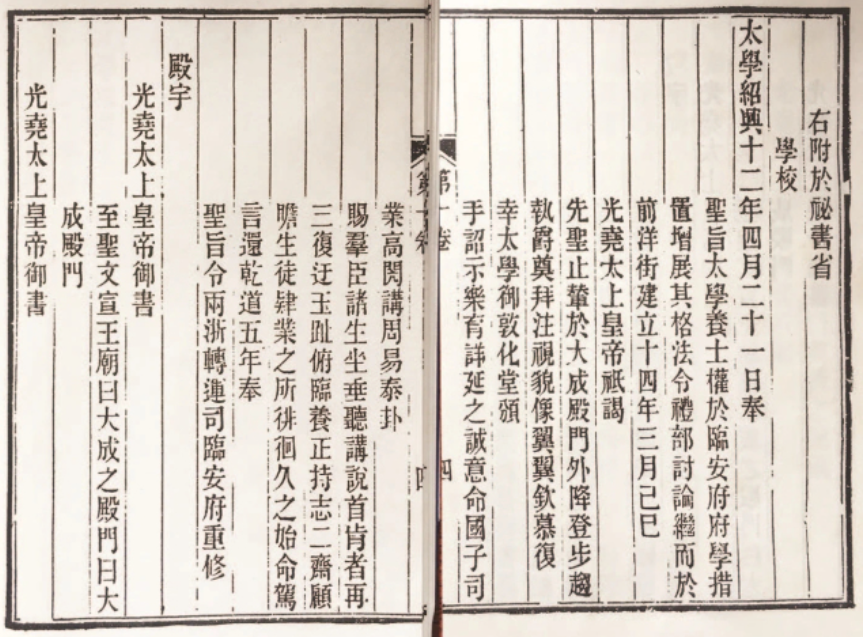 右附於祕書省
學校
太學紹興十二年四月二十一日奉
聖旨太學養士權於臨安府府學措
置增展其格法令禮部討論繼而於
前洋街建立十四年三月己巳
光堯太上皇帝祇謁
先聖止輦於大成殿門外降登步趨
執爵奠拜注視貌像翼翼欽慕復
幸太學御敦化堂頒
手詔示樂育詳延之誠意命國子司
第一卷
四
業高閌講周易泰卦
賜羣臣諸生坐垂聽講說首肯者再
三復迂玉趾俯臨養正持志二齋顧
瞻生徒肄業之所徘徊久之始命駕
言還乾道五年奉
聖旨令兩浙轉運司臨安府重修
殿宇
光堯太上皇帝御書
至聖文宣王廟曰大成之殿門曰大
成殿門
光堯太上皇帝御書